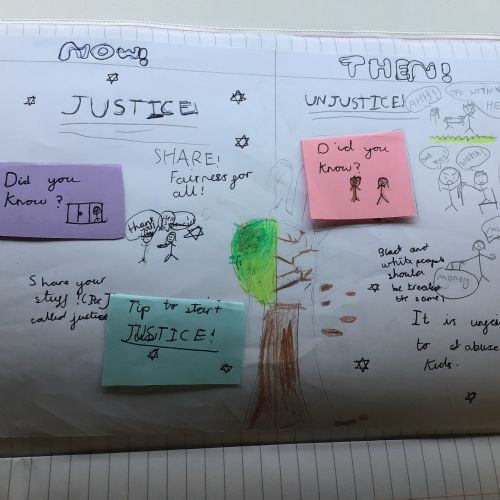 NOW!
JUSTICE!
SHARE!
Fairness for
all!
Did you
Know?
thank
Share your
stuff!
called justice
Tip to start
JUSTICE!
THEN!
UNJUSTICE!
AHH!
OFF WITH
HE
Did you
know?
money
Black and
white people
should
be treated
the same!
It is
to abuse
Kids.